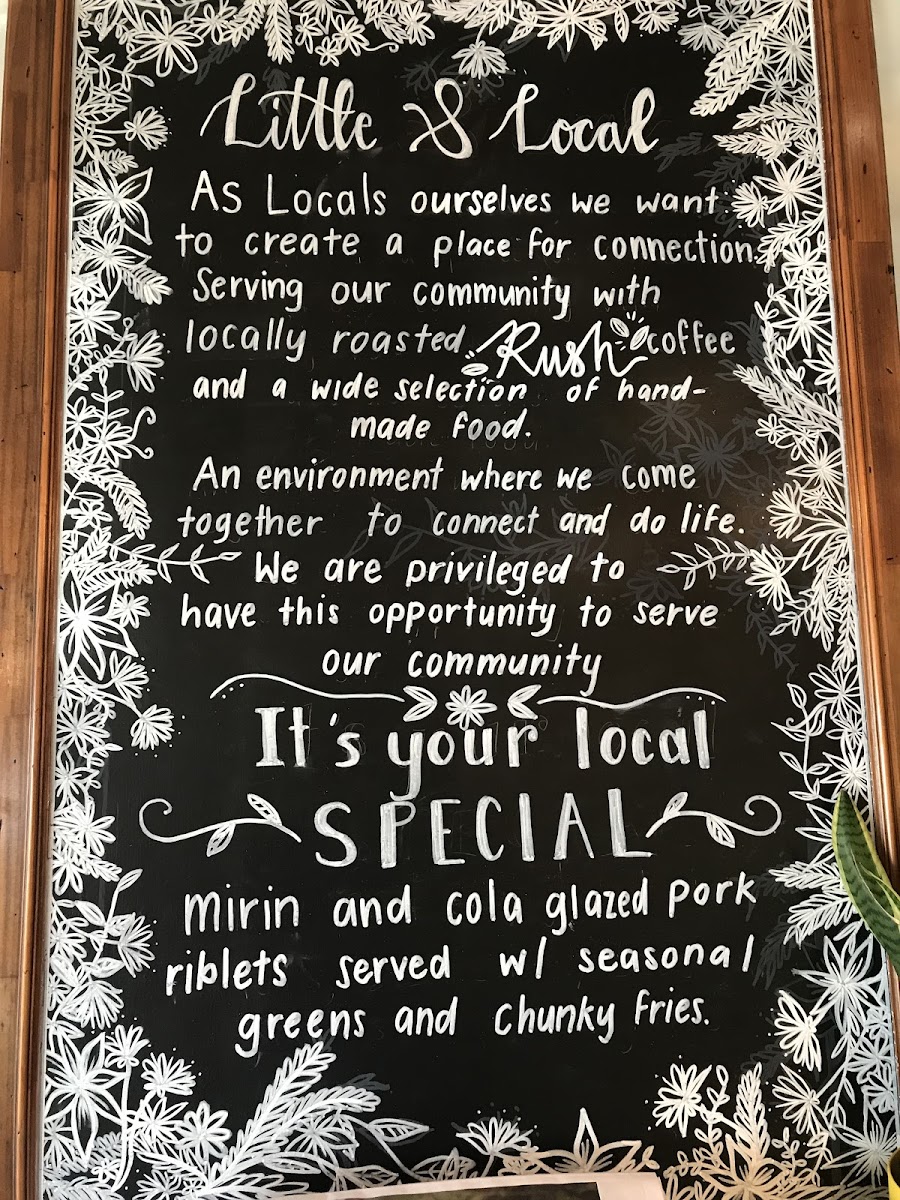 Little & Local
As Locals ourselves we want
to create a place for connection.
Serving our community with
locally roasted Rush coffee
and a wide selection of hand-
made food.
An environment where we come
together to connect and do life.
We are privileged to
have this opportunity to serve
our community
It's your local
SPECIAL
mirin and cola glazed pork
riblets served w/ seasonal
greens and chunky fries.